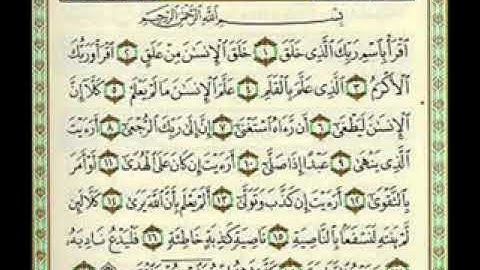 بِسْمِ اللَّهِ الرَّحْمَٰنِ الرَّحِيمِ
ٱقْرَأْ بِٱسْمِ رَبِّكَ ٱلَّذِى خَلَقَ ١ خَلَقَ ٱلْإِنسَٰنَ مِنْ عَلَقٍ ٢ ٱقْرَأْ وَرَبُّكَ
ٱلْأَكْرَمُ ٣ ٱلَّذِى عَلَّمَ بِٱلْقَلَمِ ٤ عَلَّمَ ٱلْإِنسَٰنَ مَا لَمْ يَعْلَمْ ٥ كَلَّآ إِنَّ
ٱلْإِنسَٰنَ لَيَطْغَىٰٓ ٦ أَن رَّءَاهُ ٱسْتَغْنَىٰٓ ٧ إِنَّ إِلَىٰ رَبِّكَ ٱلرُّجْعَىٰٓ ٨ أَرَءَيْتَ
ٱلَّذِى يَنْهَىٰ ٩ عَبْدًا إِذَا صَلَّىٰٓ ١٠ أَرَءَيْتَ إِن كَانَ عَلَى ٱلْهُدَىٰٓ ١١ أَوْ أَمَرَ
بِٱلتَّقْوَىٰٓ ١٢ أَرَءَيْتَ إِن كَذَّبَ وَتَوَلَّىٰٓ ١٣ أَلَمْ يَعْلَم بِأَنَّ ٱللَّهَ يَرَىٰ ١٤ كَلَّا لَئِن
لَّمْ يَنتَهِ لَنَسْفَعًۢا بِٱلنَّاصِيَةِ ١٥ نَاصِيَةٍ كَٰذِبَةٍ خَاطِئَةٍ ١٦ فَلْيَدْعُ نَادِيَهُۥ